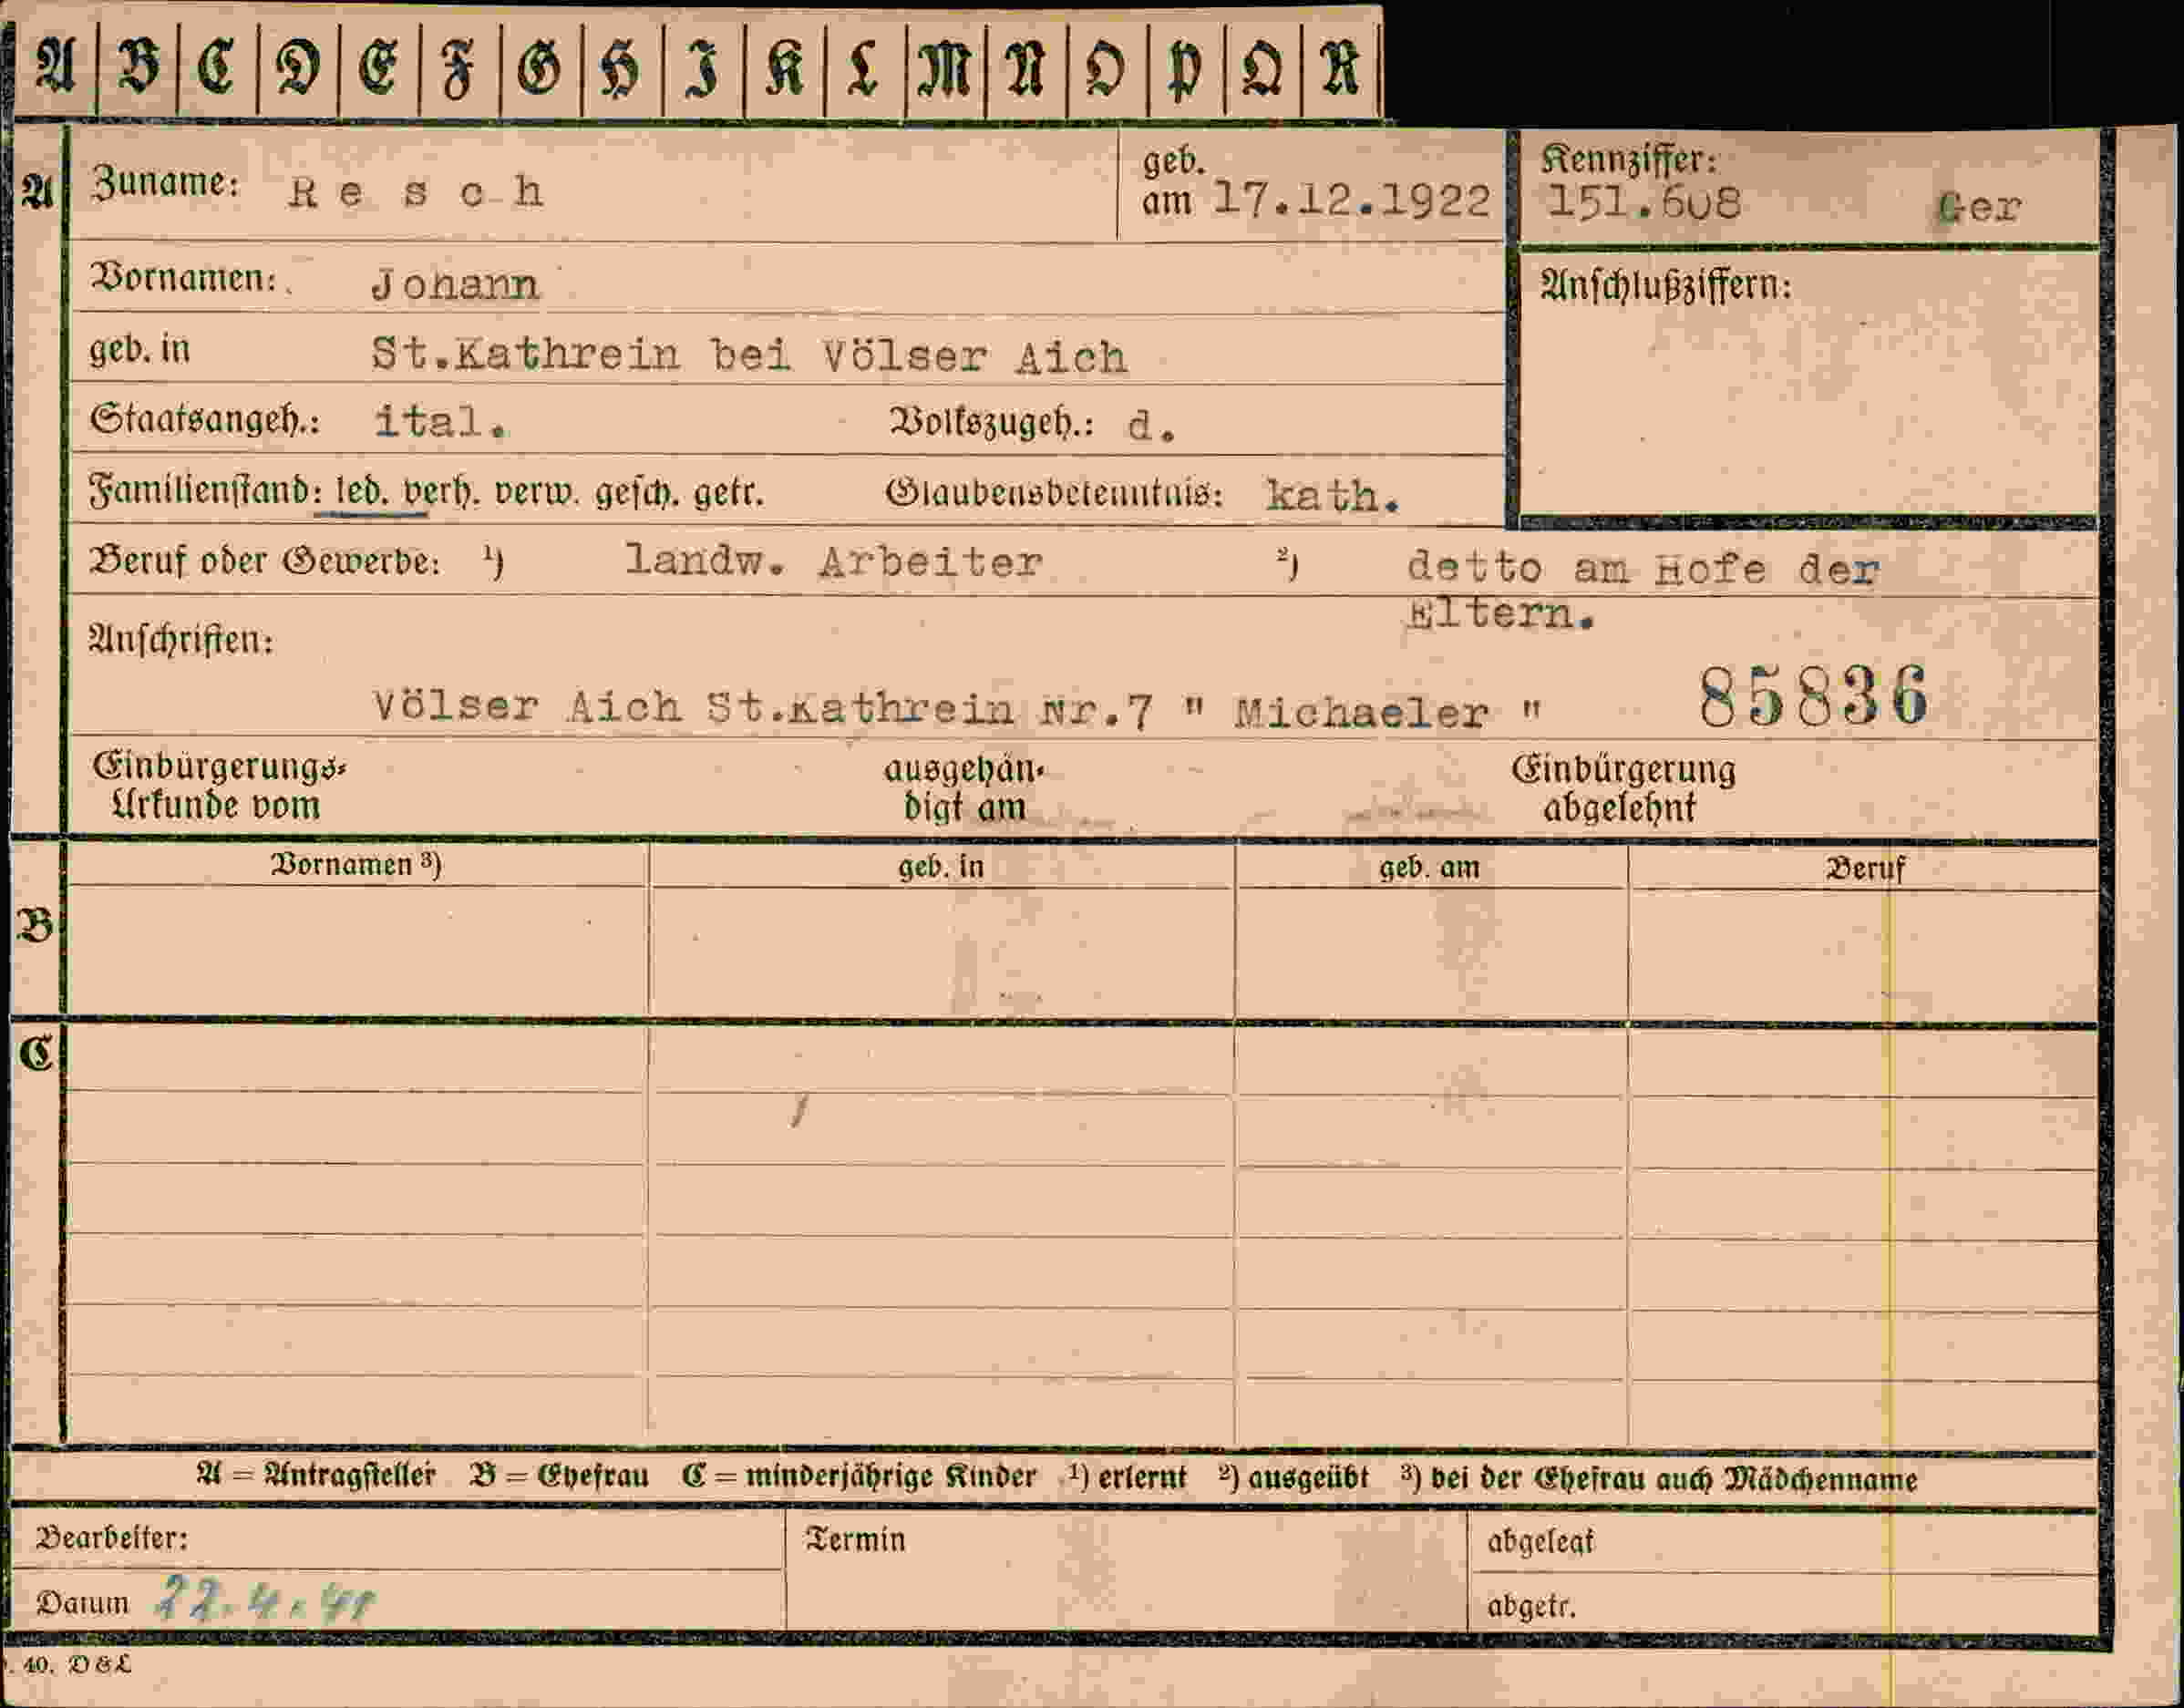 A B C D E F G H I K L M N O P Q R
A Zuname: Resch geb. am 17.12.1922 Kennziffer: 151.608 Ger
Vornamen: Johann Anschlußziffern:
geb. in St.Kathrein bei Völser Aich
Staatsangeh.: ital. Volkszugeh.: d.
Familienstand: led. verh. verw. gesch. getr. Glaubensbekenntnis: kath.
Beruf oder Gewerbe: ¹) landw. Arbeiter ²) detto am Hofe der
Eltern.
Anschriften:
Völser Aich St.Kathrein Nr.7 " Michaeler " 85836
Einbürgerungs- ausgehän- Einbürgerung
Urkunde vom digt am abgelehnt
Vornamen ³) geb. in geb. am Beruf
B
C
A = Antragsteller B = Ehefrau C = minderjährige Kinder ¹) erlernt ²) ausgeübt ³) bei der Ehefrau auch Mädchenname
Bearbeiter: Termin abgelegt
Datum 22.4.41 abgetr.
. 40. D & L